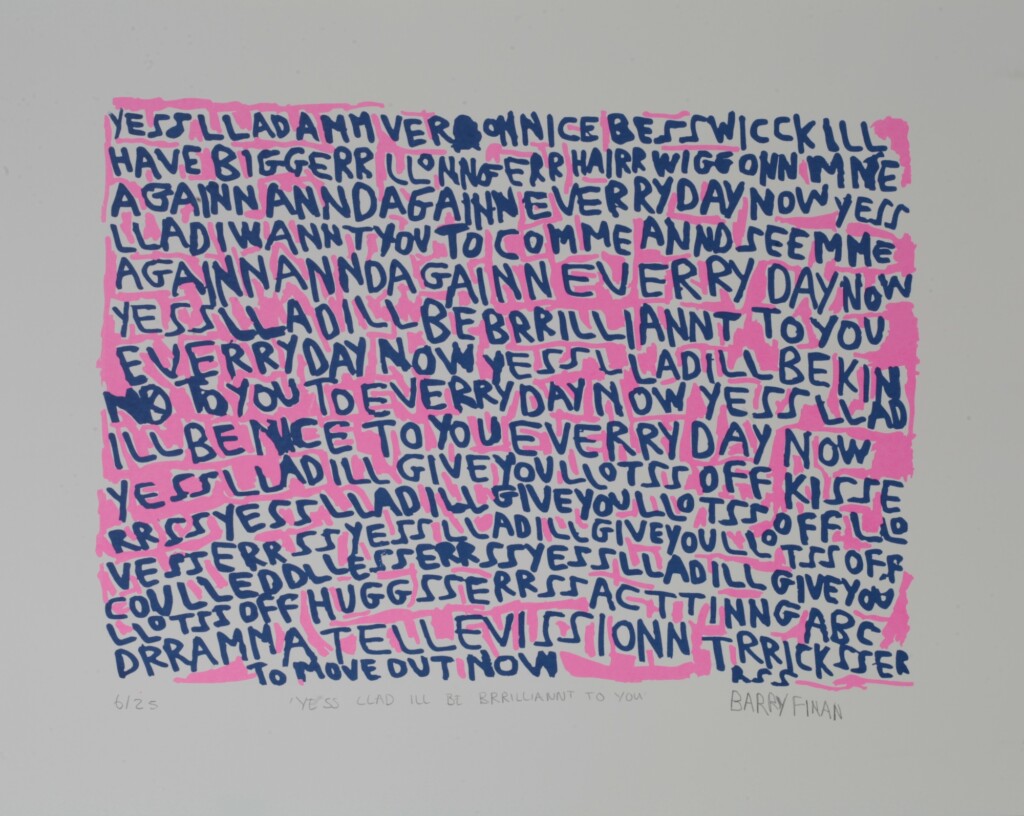 YESS LLAD AMM VER ONN NICE BESSWICCK ILL
HAVE BIGGERR LLONNGERR HAIRR WIGG ONN MME
AGAINN ANND AGAINN EVERRY DAY NOW YESS
LLAD I WANNT YOU TO COMME ANND SEE MME
AGAINN ANND AGAINN EVERRY DAY NOW
YESS LLAD ILL BE BRRILLIANNT TO YOU
EVERRY DAY NOW YESS LLAD ILL BE KIN
TO YOU TO EVERRY DAY NOW YESS LLAD
ILL BE NICE TO YOU EVERRY DAY NOW
YESS LLAD ILL GIVE YOU LLOTSS OFF KISSE
RRSS YESS LLAD ILL GIVE YOU LLOTSS OFF LLO
VESSERRSS YESS LLAD ILL GIVE YOU LLOTSS OFF
COULLEDDLLESSERRSS YESS LLAD ILL GIVE YOU
LLOTSS OFF HUGGSSERRSS ACTTINNG ABC
DRRAMMA TELLEVISSIONN TRRICKSSER
TO MOVE OUT NOW RSS
6/25 'YESS LLAD ILL BE BRRILLIANNT TO YOU' BARRY FINAN